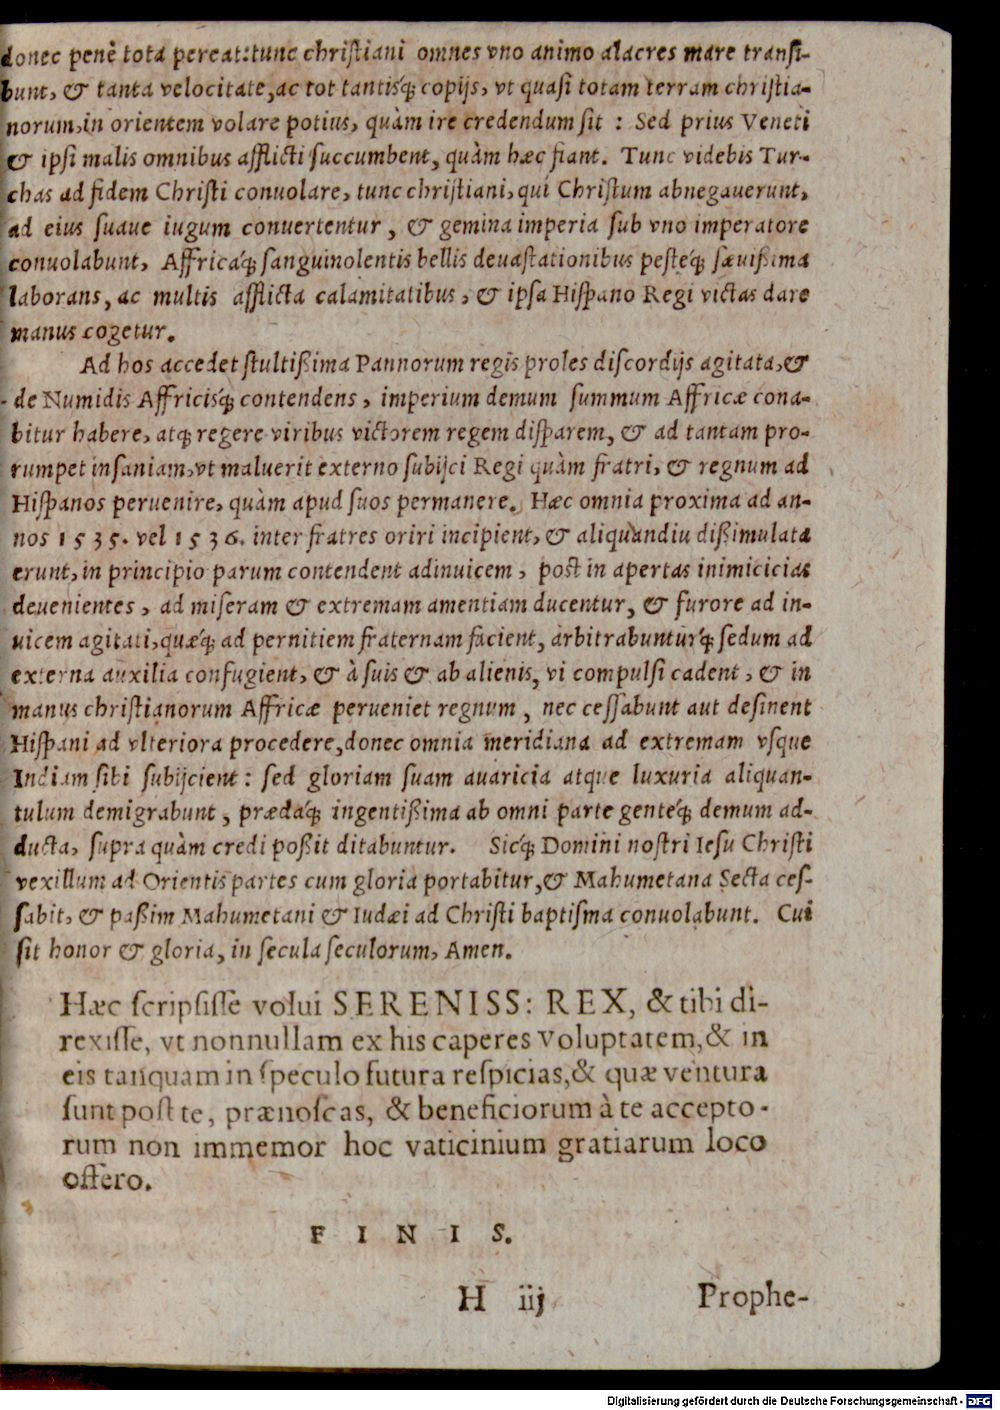 donec penè tota pereat: tunc christiani omnes vno animo alacres mare transi-
bunt, & tanta velocitate, ac tot tantisq́; copijs, vt quasi totam terram christia-
norum, in orientem volare potius, quàm ire credendum sit : Sed prius Veneti
& ipsi malis omnibus afflicti succumbent, quàm hæc fiant. Tunc videbis Tur-
chas ad fidem Christi conuolare, tunc christiani, qui Christum abnegauerunt,
ad eius suaue iugum conuertentur, & gemina imperia sub vno imperatore
conuolabunt, Affricaq́; sanguinolentis bellis deuastationibus pesteq́; sæuißima
laborans, ac multis afflicta calamitatibus, & ipsa Hispano Regi victas dare
manus cogetur.
Ad hos accedet stultißima Pannorum regis proles discordijs agitata, &
de Numidis Affricisq́; contendens, imperium demum summum Affricæ cona-
bitur habere, atq; regere viribus victorem regem disparem, & ad tantam pro-
rumpet insaniam, vt maluerit externo subijci Regi quàm fratri, & regnum ad
Hispanos peruenire, quàm apud suos permanere. Hæc omnia proxima ad an-
nos 1535. vel 1536. inter fratres oriri incipient, & aliquandiu dißimulata
erunt, in principio parum contendent adinuicem, post in apertas inimicicias
deuenientes, ad miseram & extremam amentiam ducentur, & furore ad in-
uicem agitati, quæq́; ad pernitiem fraternam facient, arbitrabunturq́; sedum ad
externa auxilia confugient, & à suis & ab alienis, vi compulsi cadent, & in
manus christianorum Affricæ perueniet regnum, nec cessabunt aut desinent
Hispani ad vlteriora procedere, donec omnia meridiana ad extremam vsque
Indiam sibi subijcient : sed gloriam suam auaricia atque luxuria aliquan-
tulum demigrabunt, prædaq́; ingentißima ab omni parte genteq́; demum ad-
ducta, supra quàm credi poßit ditabuntur. Sicq́; Domini nostri Iesu Christi
vexillum ad Orientis partes cum gloria portabitur, & Mahumetana Secta ces-
sabit, & paßim Mahumetani & Iudæi ad Christi baptisma conuolabunt. Cui
sit honor & gloria, in secula seculorum, Amen.
Hæc scripsisse volui SERENISS: REX, & tibi di-
rexisse, vt nonnullam ex his caperes voluptatem, & in
eis tanquam in speculo futura respicias, & quæ ventura
sunt post te, prænoscas, & beneficiorum à te accepto-
rum non immemor hoc vaticinium gratiarum loco
offero.
FINIS.
H iij Prophe-
Digitalisierung gefördert durch die Deutsche Forschungsgemeinschaft - DFG